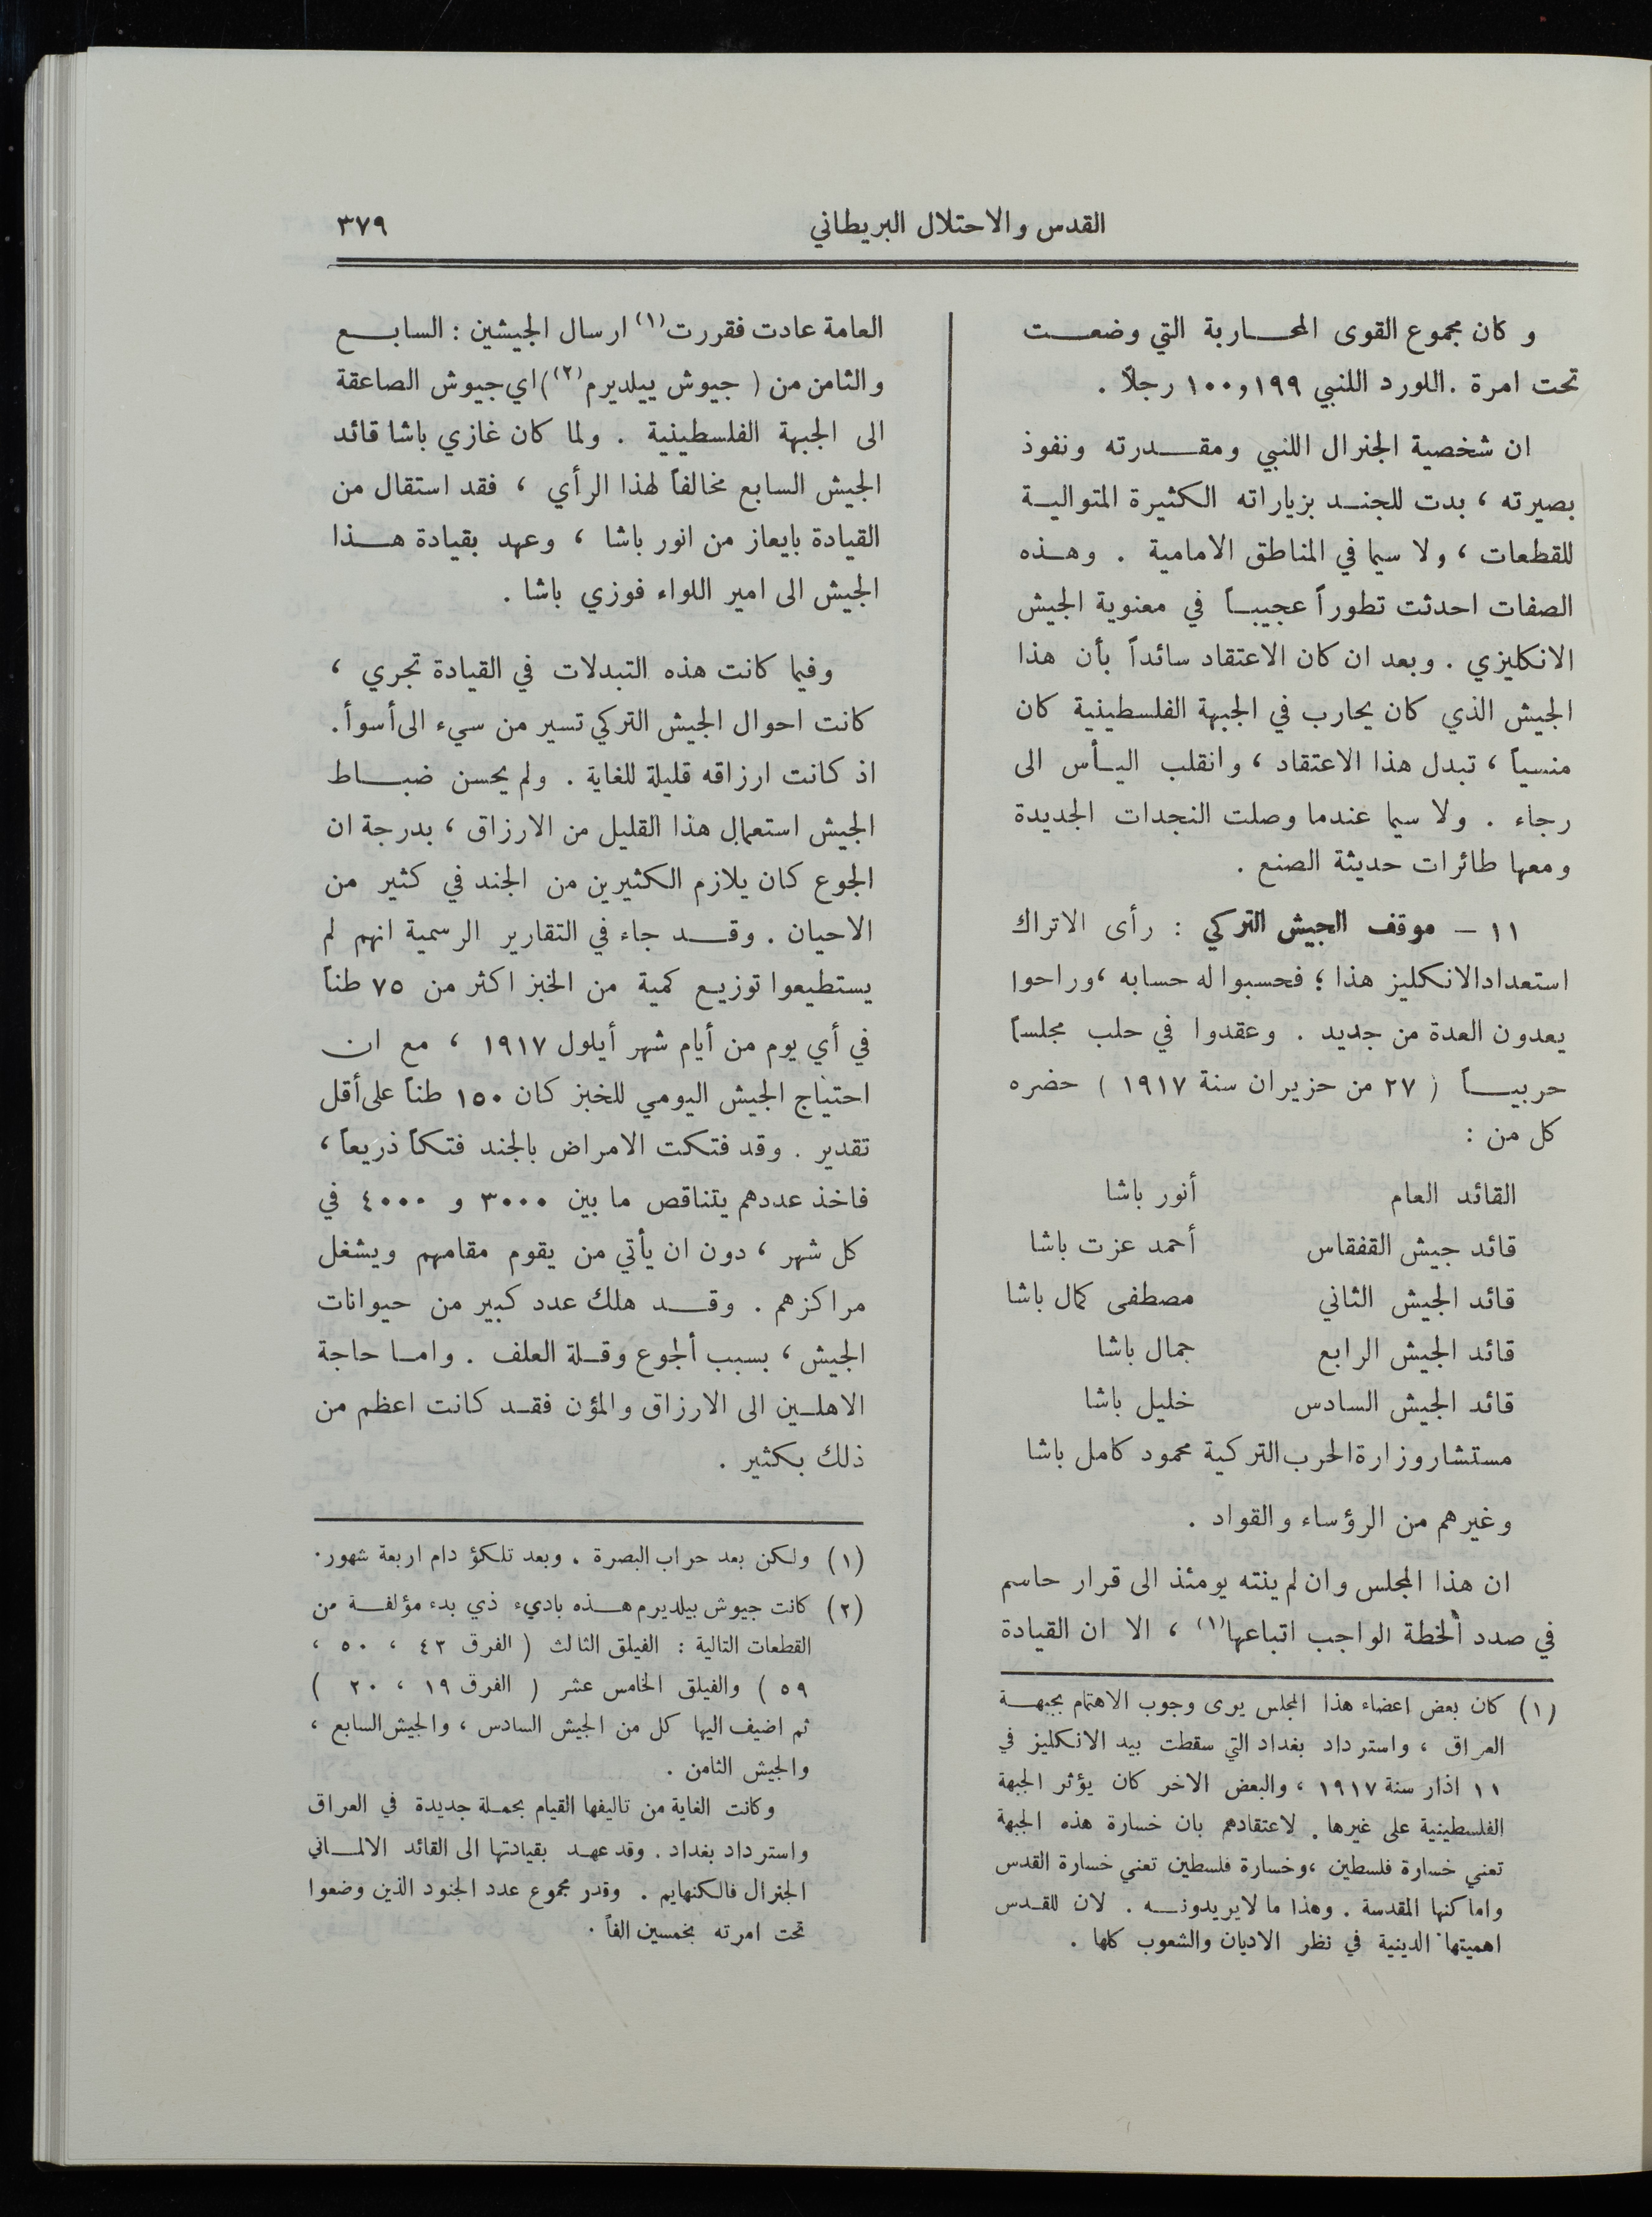 القدس والاحتلال البريطاني
٣٧٩
وكان مجموع القوى المحاربة التي وضعت
تحت امرة .اللورد اللنبي ١٩٩و١٠٠ رجلاً .
ان شخصية الجنرال اللنبي ومقدرته ونفوذ
بصيرته ، بدت للجند بزياراته الكثيرة المتوالية
للقطعات ، ولا سيما في المناطق الامامية . وهذه
الصفات احدثت تطوراً عجيباً في معنوية الجيش
الانكليزي . وبعد ان كان الاعتقاد سائداً بأن هذا
الجيش الذي كان يحارب في الجبهة الفلسطينية كان
منسياً ، تبدل هذا الاعتقاد ، وانقلب اليأس الى
رجاء . ولا سيما عندما وصلت النجدات الجديدة
ومعها طائرات حديثة الصنع .
١١ – موقف الجيش التركي : رأى الاتراك
استعداد الانكليز هذا ؛ فحسبوا له حسابه ، وراحوا
يعدون العدة من جديد . وعقدوا في حلب مجلساً
حربياً ( ٢٧ من حزيران سنة ١٩١٧ ) حضره
كل من :
القائد العام أنور باشا
قائد جيش القفقاس أحمد عزت باشا
قائد الجيش الثاني مصطفى كمال باشا
قائد الجيش الرابع جمال باشا
قائد الجيش السادس خليل باشا
مستشار وزارة الحرب التركية محمود كامل باشا
وغيرهم من الرؤساء والقواد .
ان هذا المجلس وان لم ينته يومئذ الى قرار حاسم
في صدد الخطة الواجب اتباعها(١) ، الا ان القيادة
(١) كان بعض اعضاء هذا المجلس يرى وجوب الاهتمام بجبهة
العراق ، واسترداد بغداد التي سقطت بيد الانكليز في
١١ اذار سنة ١٩١٧ ، والبعض الاخر كان يؤثر الجبهة
الفلسطينية على غيرها . لاعتقادهم بان خسارة هذه الجبهة
تعني خسارة فلسطين ، وخسارة فلسطين تعني خسارة القدس
واماكنها المقدسة . وهذا ما لايريدونه . لان للقدس
اهميتها الدينية في نظر الاديان والشعوب كلها .
العامة عادت فقررت(١) ارسال الجيشين : السابع
والثامن من ( جيوش ييلديرم(٢) ) اي جيوش الصاعقة
الى الجبهة الفلسطينية . ولما كان غازي باشا قائد
الجيش السابع مخالفاً لهذا الرأي ، فقد استقال من
القيادة بايعاز من انور باشا ، وعهد بقيادة هذا
الجيش الى امير اللواء فوزي باشا .
وفيما كانت هذه التبدلات في القيادة تجري ،
كانت احوال الجيش التركي تسير من سيء الى أسوأ .
اذ كانت ارزاقه قليلة للغاية . ولم يحسن ضباط
الجيش استعمال هذا القليل من الارزاق ، بدرجة ان
الجوع كان يلازم الكثيرين من الجند في كثير من
الاحيان . وقد جاء في التقارير الرسمية انهم لم
يستطيعوا توزيع كمية من الخبز اكثر من ٧٥ طناً
في أي يوم من أيام شهر أيلول ١٩١٧ ، مع ان
احتياج الجيش اليومي للخبز كان ١٥٠ طناً على أقل
تقدير . وقد فتكت الامراض بالجند فتكاً ذريعاً ،
فاخذ عددهم يتناقص ما بين ٣٠٠٠ و ٤٠٠٠ في
كل شهر ، دون ان يأتي من يقوم مقامهم ويشغل
مراكزهم . وقد هلك عدد كبير من حيوانات
الجيش ، بسبب ألجوع وقلة العلف . واما حاجة
الاهلين الى الارزاق والمؤن فقد كانت اعظم من
ذلك بكثير .
(١) ولكن بعد خراب البصرة . وبعد تلكؤ دام اربعة شهور .
(٢) كانت جيوش بيلديرم هذه باديء ذي بدء مؤلفة من
القطعات التالية : الفيلق الثالث ( الفرق ٤٢ ، ٥٠ ،
٥٩ ) والفيلق الخامس عشر ( الفرق ١٩ ، ٢٠ )
ثم اضيف اليها كل من الجيش السادس ، والجيش السابع ،
والجيش الثامن .
وكانت الغاية من تاليفها القيام بحملة جديدة في العراق
واسترداد بغداد . وقد عهد بقيادتها الى القائد الالماني
الجنرال فالكنهايم . وقدر مجموع عدد الجنود الذين وضعوا
تحت امرته بخمسين الفاً .